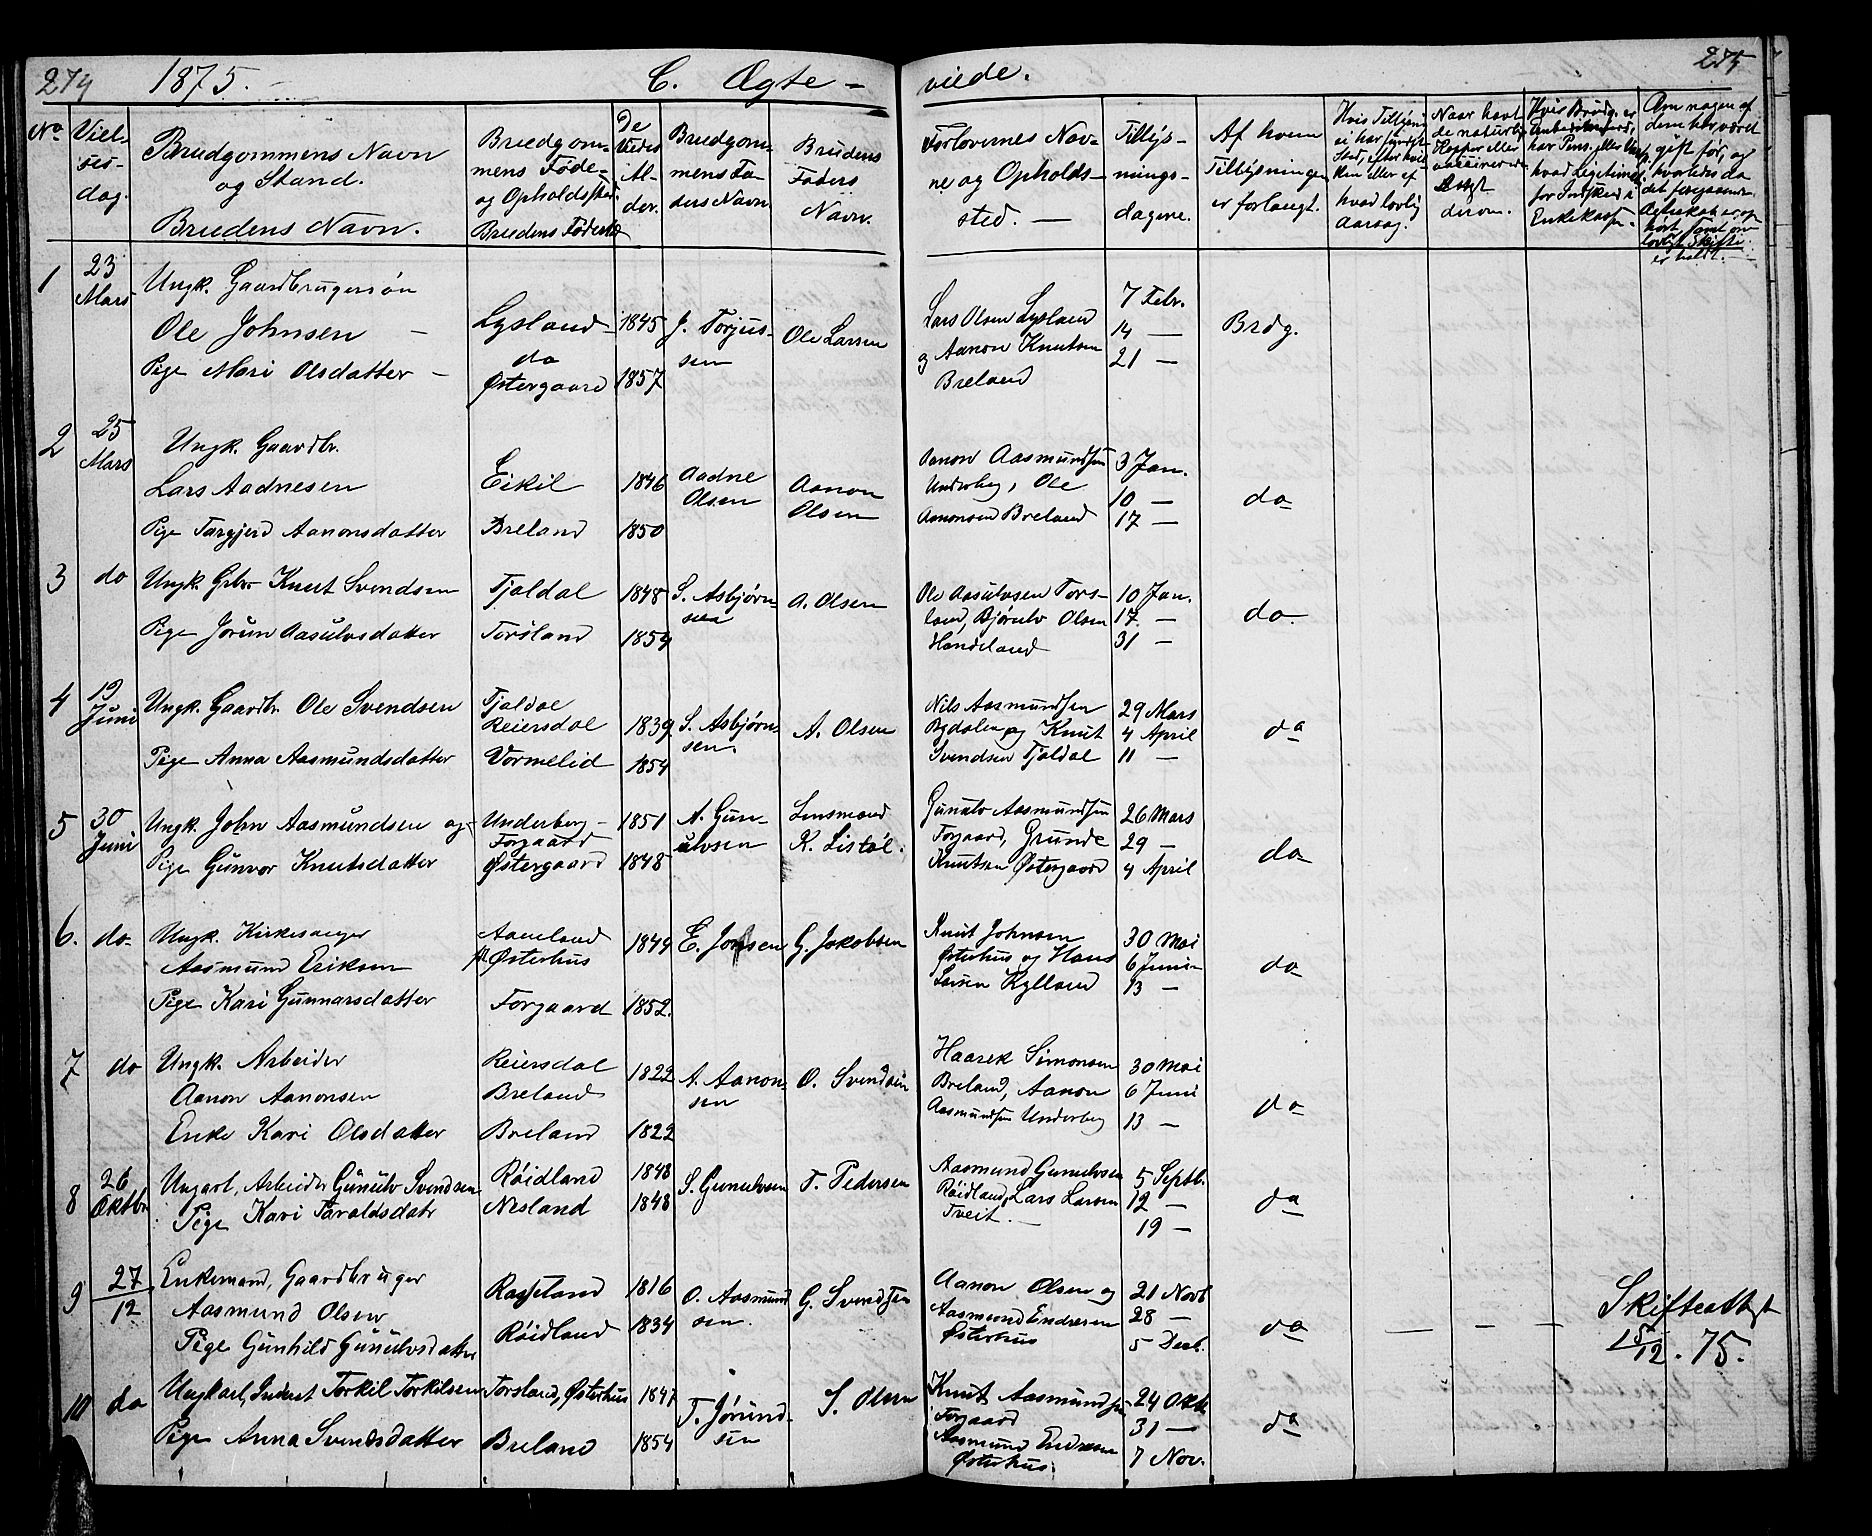 274 1875. C. Ægte- viede. 275
No.
Viel-
ses-
dag.
Brudgommens Navn
og Stand.
Brudens Navn.
Brudgom-
mens Føde-
og Opholdssted.
Brudens Fødested
De
Viedes
Al-
der.
Brudgom-
mens Fa-
ders Navn
Brudens
Faders
Navn.
Forlovernes Nav-
ne og Opholds-
sted. —
Tillys-
nings-
dagene.
Af hvem
Tillysningen
er forlangt.
Hvis Tillysning
ei har fundet
Sted, efter hvil-
ken eller af
hvad lovlig
Aarsag.
Naar havt
de naturlige
Kopper eller
vaccinerede
Attest
derom.
Hvis Brudg. er
Embedsmand,
har Pens. eller
hvad Legitimes.
for Indskud i
Enkekassen.
Om nogen af
dem har været
gift før, og
hvorledes da
det foregaaende
Ægteskab er op-
hørt, samt om
lovligt Skifte
er holdt. —
1 23 Mars Ungk. Gaardbrugersøn
Ole Johnsen — Lysland 1845 J. Torjus-
sen Ole Larsen Lars Olsen Lysland 7 Febr.
14 — Brdg.
Pige Mari Olsdatter — do
Østergaard 1857 og Aanon Knutsen
Breland 21 —
2 25 Mars Ungk. Gaardbr.
Lars Aadnesen Eikil 1846 Aadne
Olsen Aanon
Olsen Aanon Aasmundsen 3 Jan.
Underberg, Ole 10 — do
Pige Targjerd Aanonsdatter Breland 1850 Aanonsen Breland 17 —
3 do Ungk. Grbr. Knut Svendsen Tjaldal 1848 S. Asbjørn-
sen A. Olsen Ole Aasulvsen Tors- 10 Jan.
land, Bjørulv Olsen 17. — do.
Pige Jorun Aasulvsdatter Torsland 1854 Handeland 31 —
4 19 Juni Ungk. Gaardbr. Ole Svendsen Tjaldal
Reiersdal 1839 S. Asbjørn-
sen. A. Olsen Nils Aasmundsen 29 Mars
Bydalen og Knut 4 April do
Pige Anna Aasmundsdatter Vormelid 1854 Svendsen Tjaldal 11 —
5 30 Juni Ungk. John Aasmundsen og Underberg —
Forgaard 1851 A. Gun-
ulvsen Lensmand
K. Listøl. Gunulv Aasmundsen 26 Mars
Forgaard, Grunde 29 — do
Pige Gunvor Knutsdatter Østergaard 1848 Knutsen Østergaard 4 April
6. do Ungk. Kirkesanger Aaneland
Aasmund Eriksen Østerhus 1849 E. Jonsen G. Jakobsen Knut Johnsen 30 Mai
Østerhus og Hans 6 Juni do
Pige Kari Gunnarsdatter Forgaard 1852. Larsen Kylland 13 —
7 do Ungk. Arbeider Reiersdal
Aanon Aanonsen Breland 1822 A. Aanon-
sen O. Svendsen Haarek Simonsen 30 Mai
Breland, Aanon 6 Juni do
Enke Kari Olsdatter Breland 1822 Aasmundsen Underberg 13 —
8 26 Oktbr. Ungarl, Arbeider Gunulv Svendsen Røidland 1848 S. Gunulvsen T. Pedersen Aasmund Gunulvsen 5 Septb.
Røidland, Lars Larsen 12 — do
Pige Kari Taraldsdatr Nesland 1848 Tveit. — 19 —
9 27/12 Enkemand, Gaardbruger
Aasmund Olsen Rasseland 1816 O. Aasmund-
sen. G. Svendsen Aanon Olsen og 21 Novb
Aasmund Endresen 28 — do — — — Skifteattest
Pige Gunhild Gunulvsdatter Røidland 1834 Østerhus 5 Decb. 15/12. 75.
10 do Ungkarl, Inderst Torkil Torkilsen Torsland, Østerhus 1847 T. Jørund-
sen S. Olsen Knut Aasmundsen 24 Oktb
Forgaard 31 — do
Pige Anna Svendsdatter Breland 1854 Aasmund Endresen
Østerhus. 7 Nov.